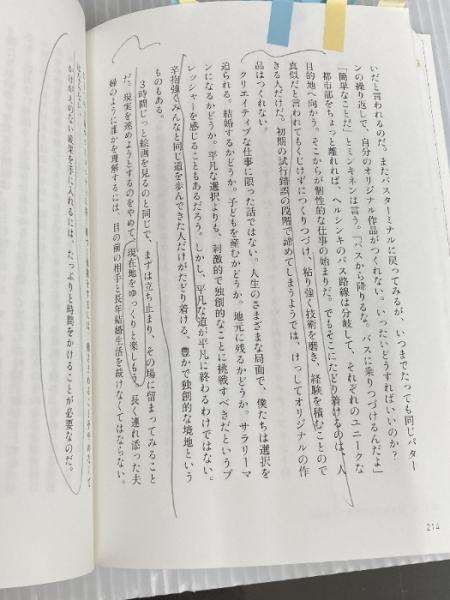 いだと言われるのだ。またバスターミナルに戻ってみるが、いつまでたっても同じパター
ンの繰り返しで、自分のオリジナル作品がつくれない。いったいどうすればいいのか?
「簡単なことだ」とミンキネンは言う。「バスから降りるな。バスに乗りつづけるんだよ」
都市部をちょっと離れれば、ヘルシンキのバス路線は分岐して、それぞれのユニークな
目的地へ向かう。そこからが個性的な仕事の始まりだ。でもそこにたどり着けるのは、人
真似だと言われてもくじけずにつくりつづけ、粘り強く技術を磨き、経験を積むことので
きる人だけだ。初期の試行錯誤の段階で諦めてしまうようでは、けっしてオリジナルの作
品はつくれない。
クリエイティブな仕事に限った話ではない。人生のさまざまな局面で、僕たちは選択を
迫られる。結婚するかどうか。子どもを産むかどうか。地元に残るかどうか。サラリーマ
ンになるかどうか。平凡な選択よりも、刺激的で独創的なことに挑戦すべきだというプ
レッシャーを感じることもあるだろう。しかし、平凡な道が平凡に終わるわけではない。
辛抱強くみんなと同じ道を歩んできた人だけがたどり着ける、豊かで独創的な境地という
ものもある。
3時間じっと絵画を見るのと同じで、まずは立ち止まり、その場に留まってみること
だ。現実を速めようとするのをやめて、現在地をゆっくりと楽しもう。長く連れ添った夫
婦のように誰かを理解するには、目の前の相手と長年結婚生活を続けなくてはならない。
かけがえのない成果を手に入れるには、たっぷりと時間をかけることが必要なのだ。
214